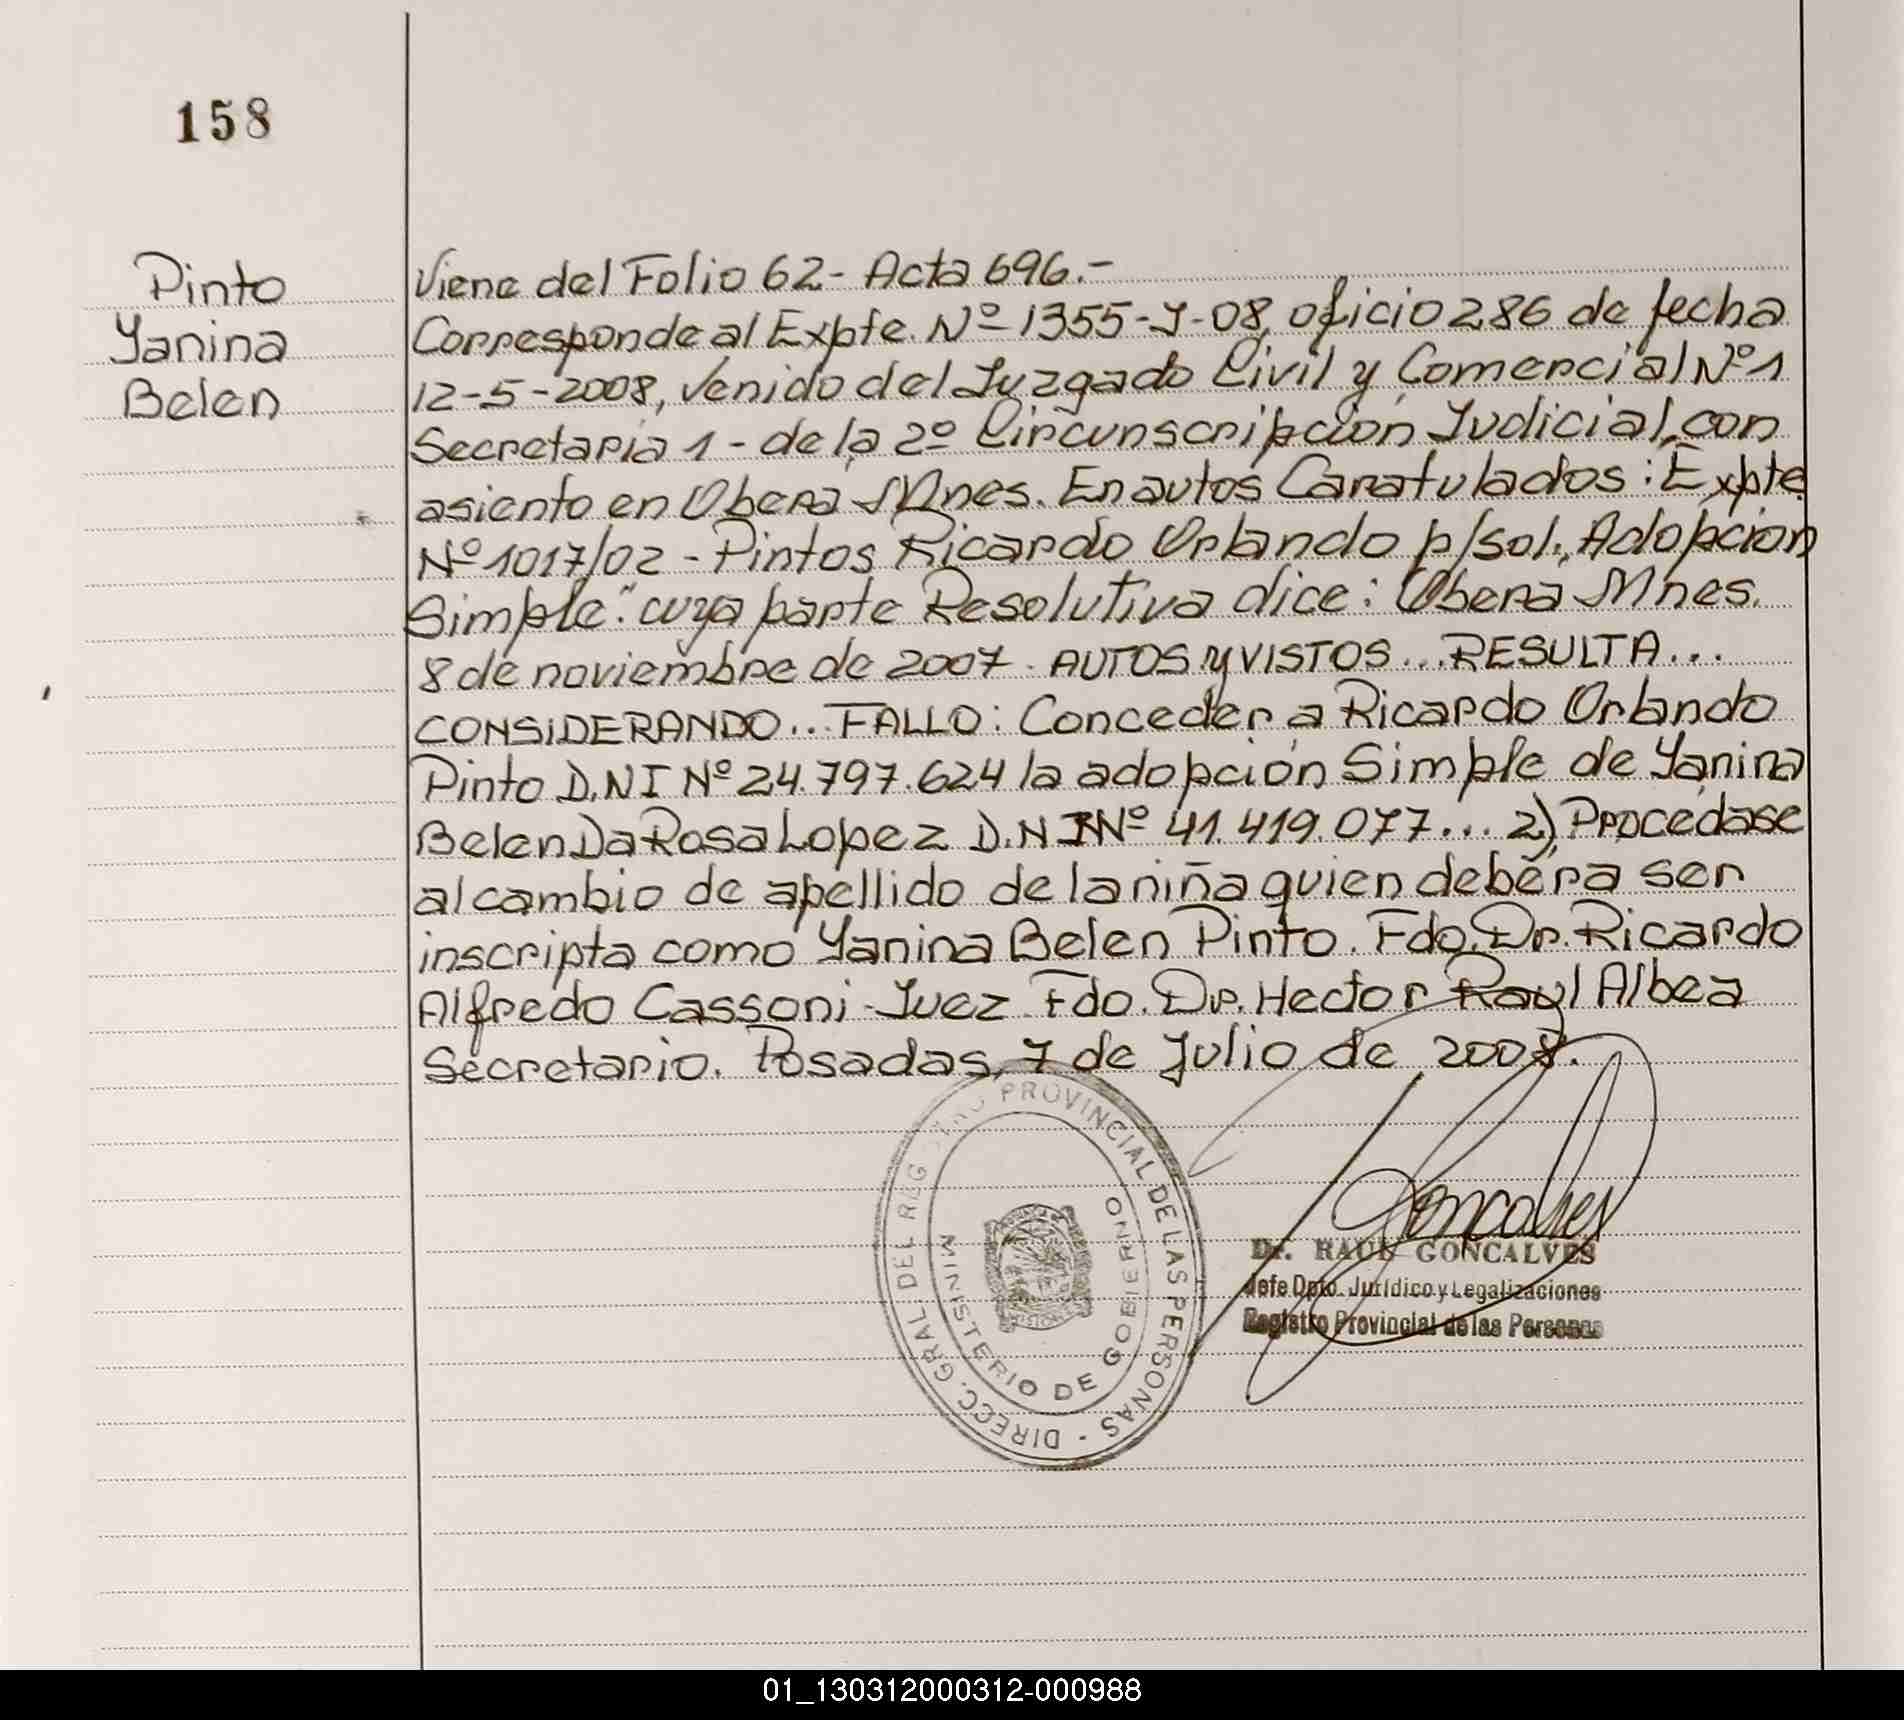 158
Pinto
Yanina
Belen
Viene del Folio 62 - Acta 696.-
Corresponde al Expte. Nº 1355-J-08, oficio 286 de fecha
12-5-2008, venido del Juzgado Civil y Comercial Nº 1
Secretaria 1 - de la 2º Circunscripción Judicial, con
asiento en Obera Mnes. En autos Caratulados: Expte.
Nº 1017/02 - Pintos Ricardo Orlando p/sol. Adopcion
Simple". cuya parte Resolutiva dice: Obera Mnes.
8 de noviembre de 2007. AUTOS y VISTOS... RESULTA...
CONSIDERANDO... FALLO: Conceder a Ricardo Orlando
Pinto D.N I Nº 24.797.624 la adopción Simple de Yanina
Belen Da Rosa Lopez D.N I Nº 41.419.077... 2) Procedase
al cambio de apellido de la niña quien debéra ser
inscripta como Yanina Belen Pinto. Fdo. Dr. Ricardo
Alfredo Cassoni - Juez Fdo. Dr. Hector Raul Albea
Secretario. Posadas, 7 de Julio de 2008.
DIRECC. GRAL. DEL REGISTRO PROVINCIAL DE LAS PERSONAS -
MINISTERIO DE GOBIERNO
MISIONES
Goncalves
Dr. RAUL GONCALVES
Jefe Dpto. Jurídico y Legalizaciones
Registro Provincial de las Personas
01_130312000312-000988